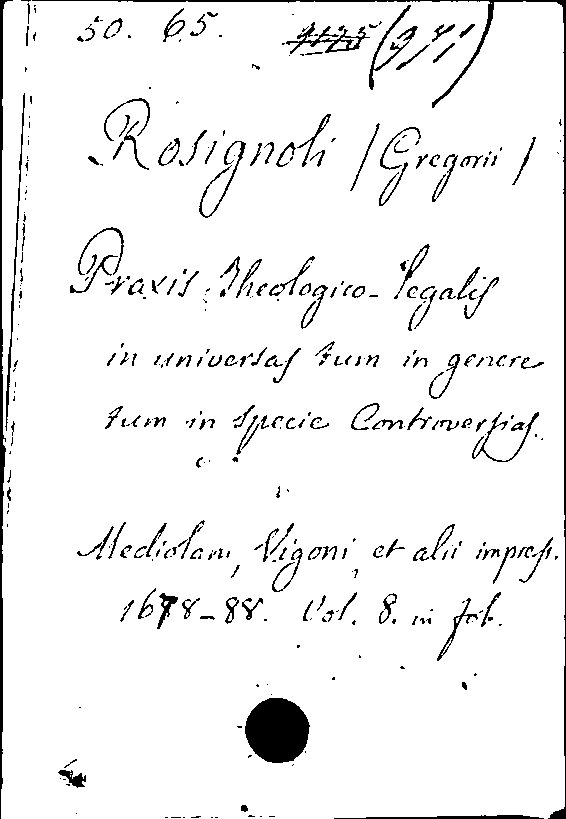 50. 65.
Rosignoli /Gregorii/
Praxis Theologico-Legalis
in universas tum in genere
tum in specie Controversias.
Mediolani, Vigoni, et alii impress.
1678-88. Vol. 8. in fol.